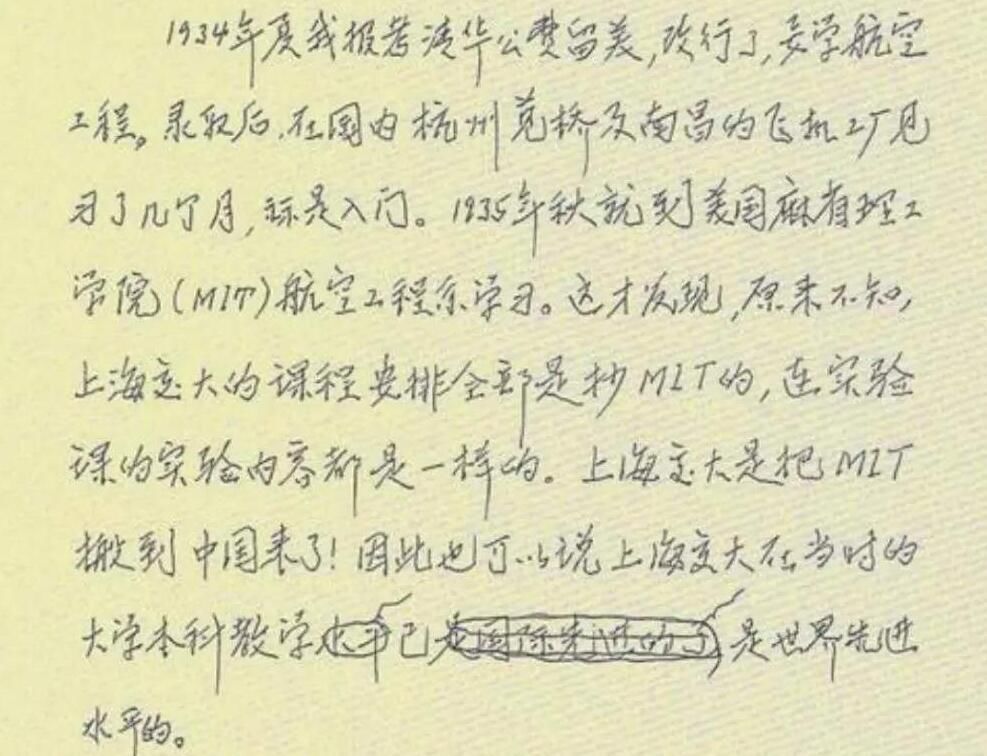 1934年夏我报考清华公费留美,改行了,要学航空
工程。录取后,在国内杭州笕桥及南昌的飞机工厂见
习了几个月,称是入门。1935年秋就到美国麻省理工
学院(MIT)航空工程系学习。这才发现,原来不知,
上海交大的课程安排全部是抄MIT的,连实验
课的实验内容都是一样的。上海交大是把MIT
搬到中国来了!因此也可以说上海交大在当时的
大学本科教学水平已是国际先进的了是世界先进
水平的。